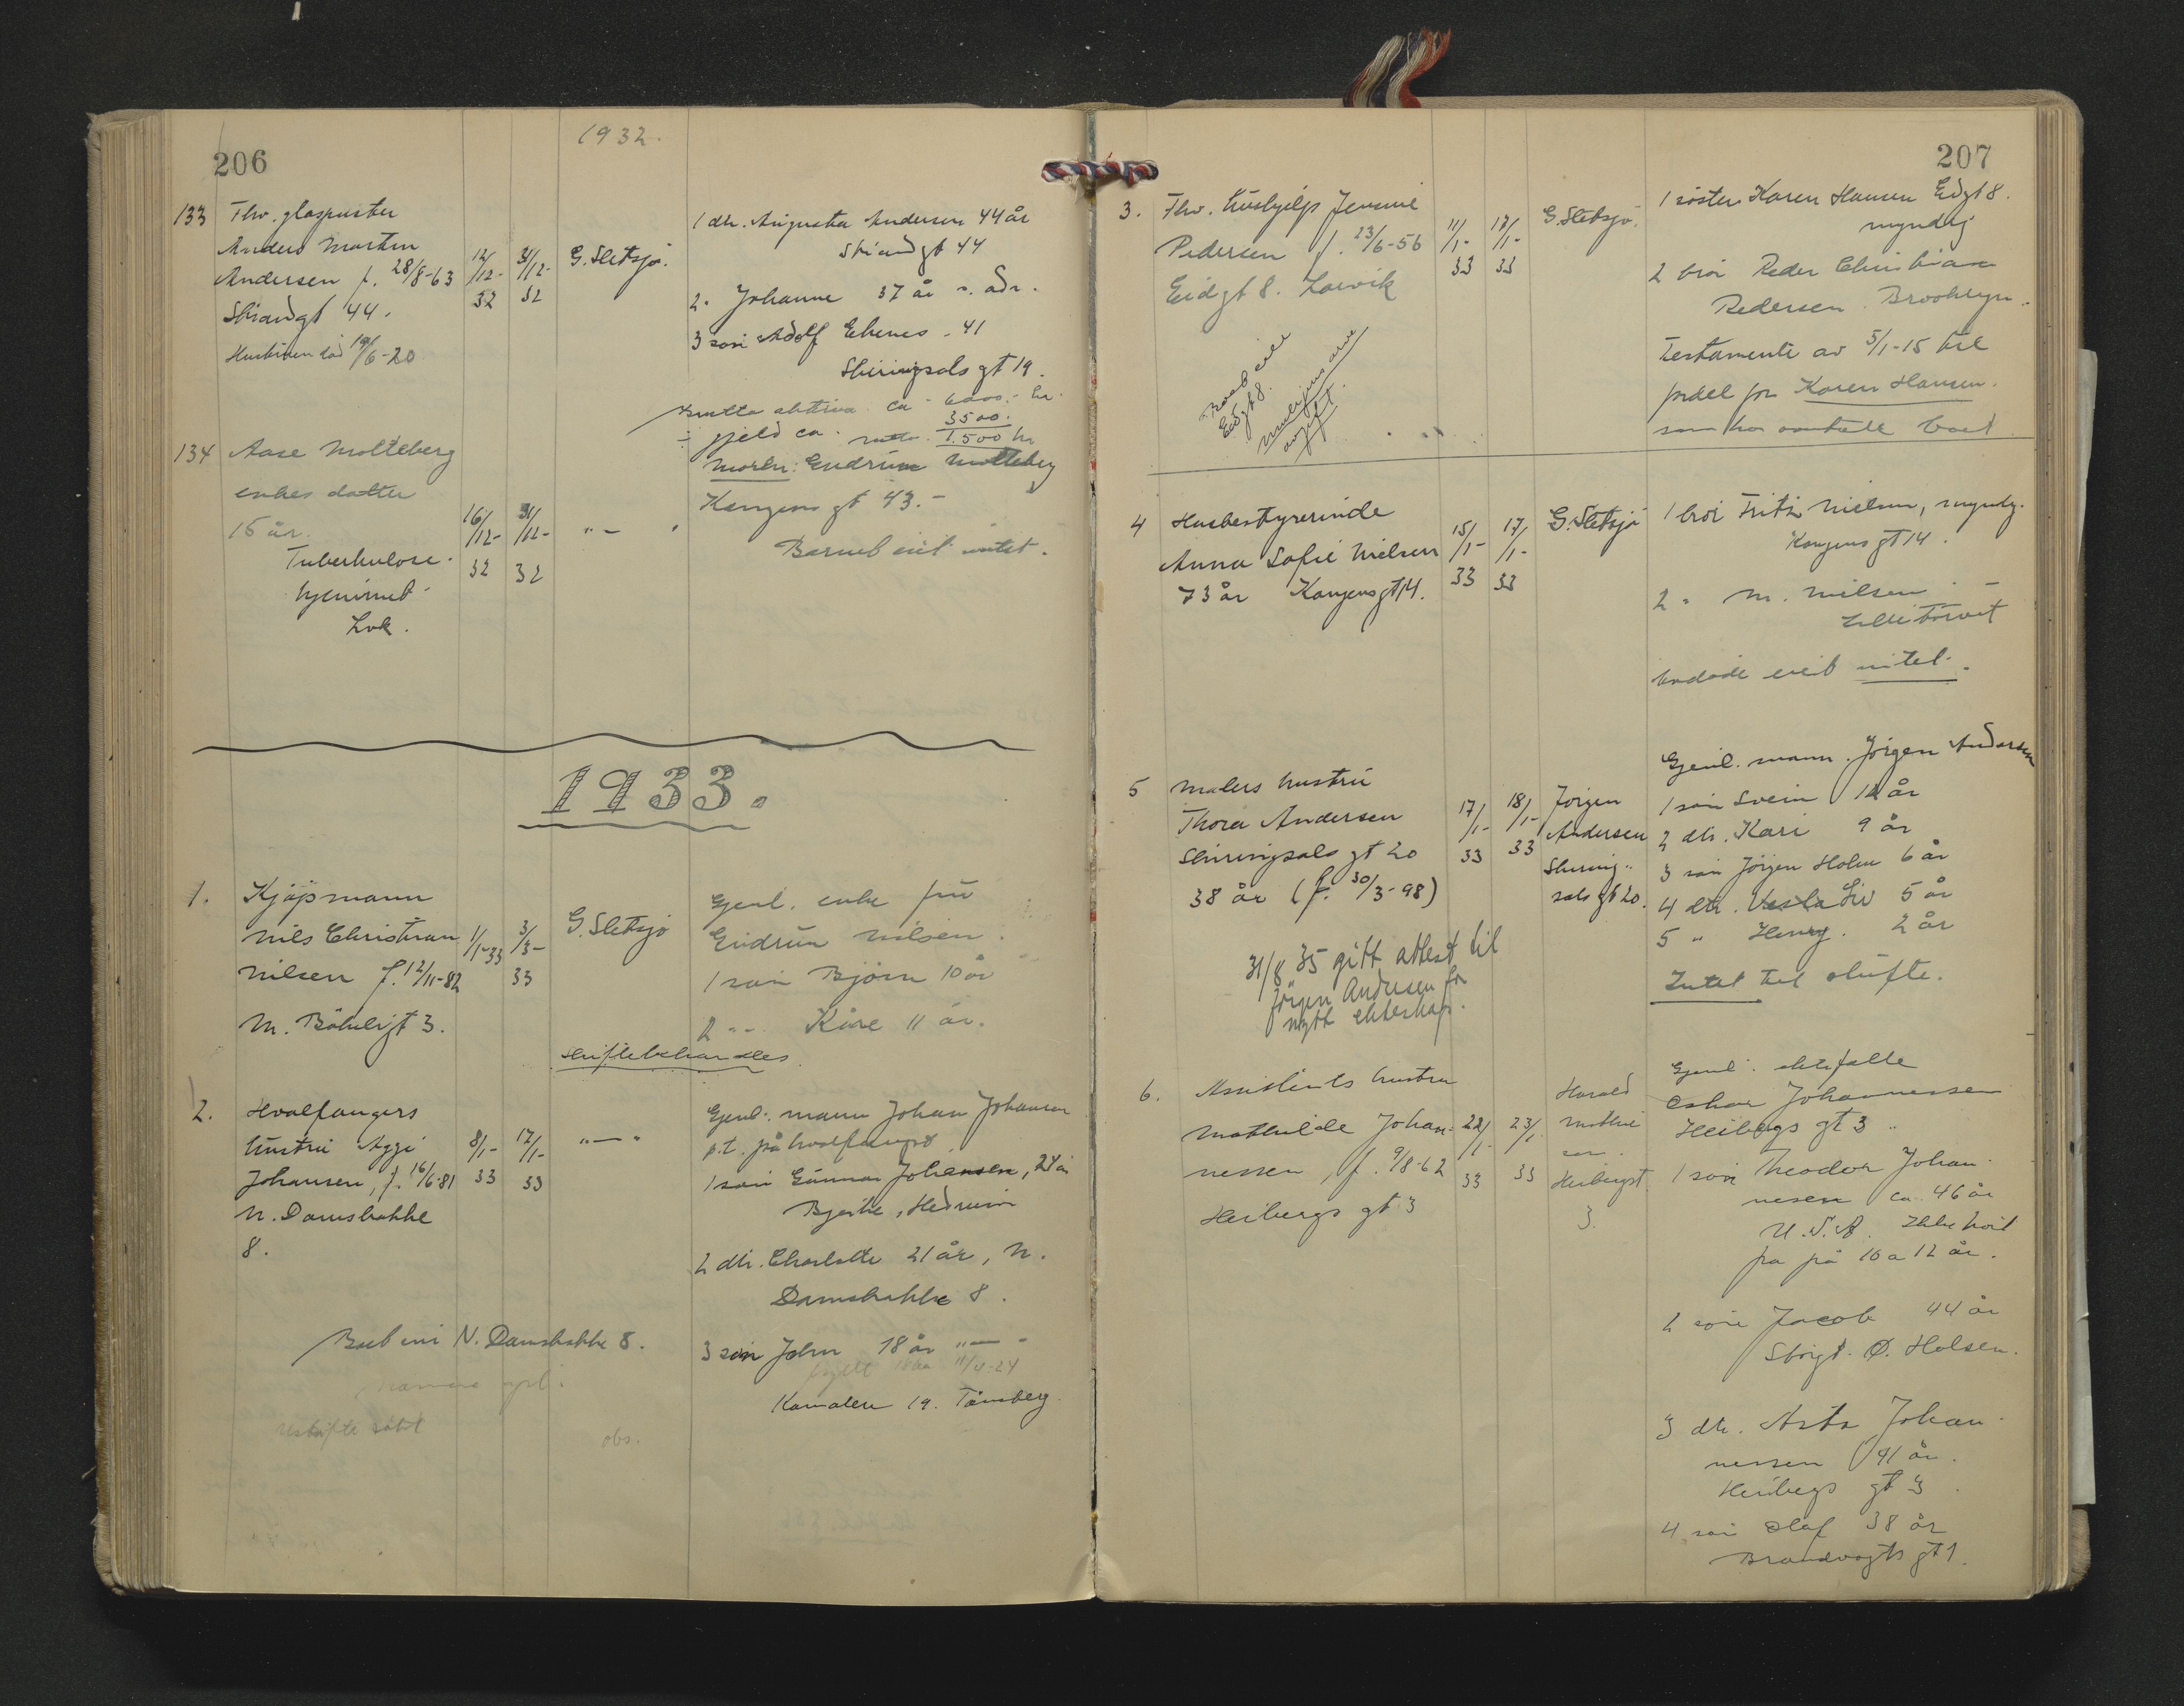 206
1932.
133 Fhv. glaspuster
Anders Martin
Andersen f. 28/8-63
Strandgt 44.
Hustruen død 19/6-20
12/12-32
31/12-32
G. Sletsjø.
1 dtr. Augusta Andersen 44 år
Strandgt 44
2 " Johanne 37 år s. adr.
3 søn Adolf Ehenes - 41
Skiringsals gt 19.
Brutto aktiva ca 6000.- kr.
÷ gjeld ca. 3500.
netto 1.500 kr
134 Aase Molteberg
enkes datter
15 år.
Tuberkulose-
hjemmet
Lvk.
16/12-32
31/12-32
" — "
Moren: Gudrun Molteberg
Kongens gt 43.-
Barnet eiet intet.
1933.
1. Kjøpmann
Nils Christian
Nilsen f. 12/11-82
M. Bøkeligt 3.
1/1-33
3/3-33
G. Sletsjø
Gjenl. enke fru
Gudrun Nilsen.
1 søn Bjørn 10 år
2 " Kåre 11 år.
Skiftebehandles
2. Hvalfangers
hustru Aggi
Johansen, f. 16/6-81
N. Damsbakke
8.
8/1-33
17/1-33
" — "
Gjenl. mann Johan Johansen
p.t. på hvalfangst
1 søn Gunnar Johansen, 24 år
Bjerke, Hedrum
2 dtr. Charlotte 21 år, N.
Damsbakke 8.
3 søn John 18 år " — "
11/4-24
Kamalen 19. Tønsberg.
Boet eier N. Damsbakke 8.
Uskifte søkt
obs.
207
3. Fhv. hushjelp Jensine
Pedersen f. 23/6-56
Eidgt 8. Larvik
11/1-33
17/1-33
G. Sletsjø.
1 søster Karen Hansen Eidgt 8.
myndig
2 bror Peder Christian
Pedersen Brooklyn.
Testamente av 5/1-15 til
fordel for Karen Hansen.
som har overtatt boet
Boet eier
Eidgt 8.
muligens arve
avgift.
4 Husbestyrerinde
Anna Sofie Nielsen
73 år Kongensgt 14.
15/1-33
17/1-33
G. Sletsjø
1 bror Fritz Nielsen, myndig.
Kongensgt 14.
2 " M. Nilsen —
Lilletorvet
Avdøde eiet intet.
5 Malers hustru
Thora Andersen
Skiringsals gt 20
38 år (f. 30/3-98)
17/1-33
18/1-33
Jørgen
Andersen
Skiring-
sals gt 20.
Gjenl. mann. Jørgen Andersen
1 søn Svein 12 år
2 dtr. Kari 9 år
3 søn Jørgen Holm 6 år
4 dtr. Vesla Liv 5 år
5 " Henny. 2 år
Intet til skifte.
31/8 35 gitt attest til
Jørgen Andersen for
nytt ekteskap.
6. Assistents hustru
Mathilde Johan-
nessen, f. 9/8-62
Heibergs gt 3
22/1-33
23/1-33
Harald
Heibergst.
3.
Gjenl. ektefelle
Oskar Johannessen
Heibergs gt 3
1 søn Theodor Johan-
nesen ca 46 år
U.S.A. Ikke hørt
fra på 10 a 12 år.
2 søn Jacob 44 år
Storgt. Ø. Halsen.
3 dtr. Asta Johan-
nessen 41 år.
Heibergs gt 3
4 søn Olaf 38 år
Brandvagts gt 1.